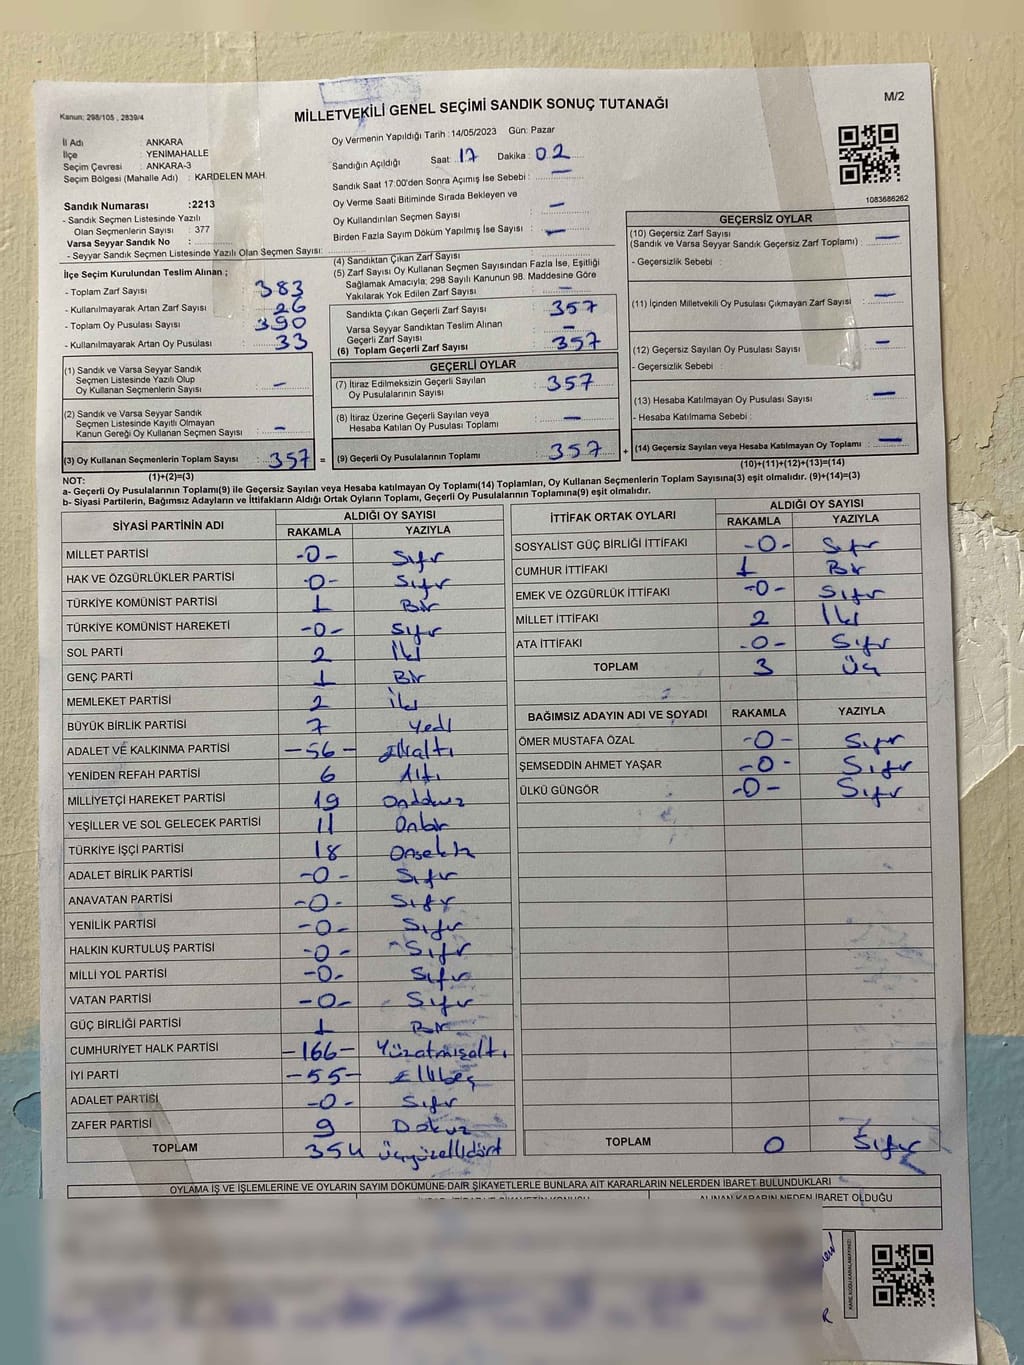 M/2
Kanun; 298/105 , 2839/4
MİLLETVEKİLİ GENEL SEÇİMİ SANDIK SONUÇ TUTANAĞI
İl Adı : ANKARA
İlçe : YENİMAHALLE
Seçim Çevresi : ANKARA-3
Seçim Bölgesi (Mahalle Adı) : KARDELEN MAH.
Sandık Numarası :2213
- Sandık Seçmen Listesinde Yazılı
Olan Seçmenlerin Sayısı : 377
Varsa Seyyar Sandık No :
- Seyyar Seçmen Listesinde Yazılı Olan Seçmen Sayısı:
Oy Vermenin Yapıldığı Tarih : 14/05/2023 Gün: Pazar
Sandığın Açıldığı Saat: 17 Dakika : 02
Sandık Saat 17:00'den Sonra Açımış İse Sebebi : —
Oy Verme Saati Bitiminde Sırada Bekleyen ve
Oy Kullandırılan Seçmen Sayısı : —
Birden Fazla Sayım Döküm Yapılmış İse Sayısı : —
1083686262
İlçe Seçim Kurulundan Teslim Alınan ;
- Toplam Zarf Sayısı : 383
- Kullanılmayarak Artan Zarf Sayısı : 26
- Toplam Oy Pusulası Sayısı : 390
- Kullanılmayarak Artan Oy Pusulası : 33
(1) Sandık ve Varsa Seyyar Sandık
Seçmen Listesinde Yazılı Olup
Oy Kullanan Seçmenlerin Sayısı : —
(2) Sandık ve Varsa Seyyar Sandık
Seçmen Listesinde Kayıtlı Olmayan
Kanun Gereği Oy Kullanan Seçmen Sayısı : —
(3) Oy Kullanan Seçmenlerin Toplam Sayısı : 357 =
(1)+(2)=(3)
(4) Sandıktan Çıkan Zarf Sayısı :
(5) Zarf Sayısı Oy Kullanan Seçmen Sayısından Fazla İse, Eşitliği
Sağlamak Amacıyla; 298 Sayılı Kanunun 98. Maddesine Göre
Yakılarak Yok Edilen Zarf Sayısı : —
Sandıkta Çıkan Geçerli Zarf Sayısı : 357
Varsa Seyyar Sandıktan Teslim Alınan
Geçerli Zarf Sayısı : —
(6) Toplam Geçerli Zarf Sayısı : 357
GEÇERLİ OYLAR
(7) İtiraz Edilmeksizin Geçerli Sayılan
Oy Pusulalarının Sayısı : 357
(8) İtiraz Üzerine Geçerli Sayılan veya
Hesaba Katılan Oy Pusulası Toplamı : —
(9) Geçerli Oy Pusulalarının Toplamı : 357 +
GEÇERSİZ OYLAR
(10) Geçersiz Zarf Sayısı
(Sandık ve Varsa Seyyar Sandık Geçersiz Zarf Toplamı) : —
- Geçersizlik Sebebi :
(11) İçinden Milletvekili Oy Pusulası Çıkmayan Zarf Sayısı : —
(12) Geçersiz Sayılan Oy Pusulası Sayısı : —
- Geçersizlik Sebebi :
(13) Hesaba Katılmayan Oy Pusulası Sayısı : —
- Hesaba Katılmama Sebebi :
(14) Geçersiz Sayılan veya Hesaba Katılmayan Oy Toplamı : —
(10)+(11)+(12)+(13)=(14)
NOT:
a- Geçerli Oy Pusulalarının Toplamı(9) ile Geçersiz Sayılan veya Hesaba Katılmayan Oy Toplamı(14) Toplamları, Oy Kullanan Seçmenlerin Toplam Sayısına(3) eşit olmalıdır. (9)+(14)=(3)
b- Siyasi Partilerin, Bağımsız Adayların ve İttifakların Aldığı Ortak Oyların Toplamı, Geçerli Oy Pusulalarının Toplamına(9) eşit olmalıdır.
SİYASİ PARTİNİN ADI ALDIĞI OY SAYISI
RAKAMLA YAZIYLA
MİLLET PARTİSİ -0- Sıfır
HAK VE ÖZGÜRLÜKLER PARTİSİ -0- Sıfır
TÜRKİYE KOMÜNİST PARTİSİ 1 Bir
TÜRKİYE KOMÜNİST HAREKETİ -0- Sıfır
SOL PARTİ 2 İki
GENÇ PARTİ 1 Bir
MEMLEKET PARTİSİ 2 İki
BÜYÜK BİRLİK PARTİSİ 7 Yedi
ADALET VE KALKINMA PARTİSİ -56- Ellialtı
YENİDEN REFAH PARTİSİ 6 Altı
MİLLİYETÇİ HAREKET PARTİSİ 19 Ondokuz
YEŞİLLER VE SOL GELECEK PARTİSİ 11 Onbir
TÜRKİYE İŞÇİ PARTİSİ 18 Onsekiz
ADALET BİRLİK PARTİSİ -0- Sıfır
ANAVATAN PARTİSİ -0- Sıfır
YENİLİK PARTİSİ -0- Sıfır
HALKIN KURTULUŞ PARTİSİ -0- Sıfır
MİLLİ YOL PARTİSİ -0- Sıfır
VATAN PARTİSİ -0- Sıfır
GÜÇ BİRLİĞİ PARTİSİ 1 Bir
CUMHURİYET HALK PARTİSİ -166- Yüzatmışaltı
İYİ PARTİ -55- Ellibeş
ADALET PARTİSİ -0- Sıfır
ZAFER PARTİSİ 9 Dokuz
TOPLAM 354 Üçyüzellidört
İTTİFAK ORTAK OYLARI ALDIĞI OY SAYISI
RAKAMLA YAZIYLA
SOSYALİST GÜÇ BİRLİĞİ İTTİFAKI -0- Sıfır
CUMHUR İTTİFAKI 1 Bir
EMEK VE ÖZGÜRLÜK İTTİFAKI -0- Sıfır
MİLLET İTTİFAKI 2 İki
ATA İTTİFAKI -0- Sıfır
TOPLAM 3 Üç
BAĞIMSIZ ADAYIN ADI VE SOYADI RAKAMLA YAZIYLA
ÖMER MUSTAFA ÖZAL -0- Sıfır
ŞEMSEDDİN AHMET YAŞAR -0- Sıfır
ÜLKÜ GÜNGÖR -0- Sıfır
TOPLAM 0 Sıfır
OYLAMA İŞ VE İŞLEMLERİNE VE OYLARIN SAYIM DÖKÜMÜNE DAİR ŞİKAYETLERLE BUNLARA AİT KARARLARIN NELERDEN İBARET BULUNDUKLARI
ALINAN KARARIN NEDEN İBARET OLDUĞU